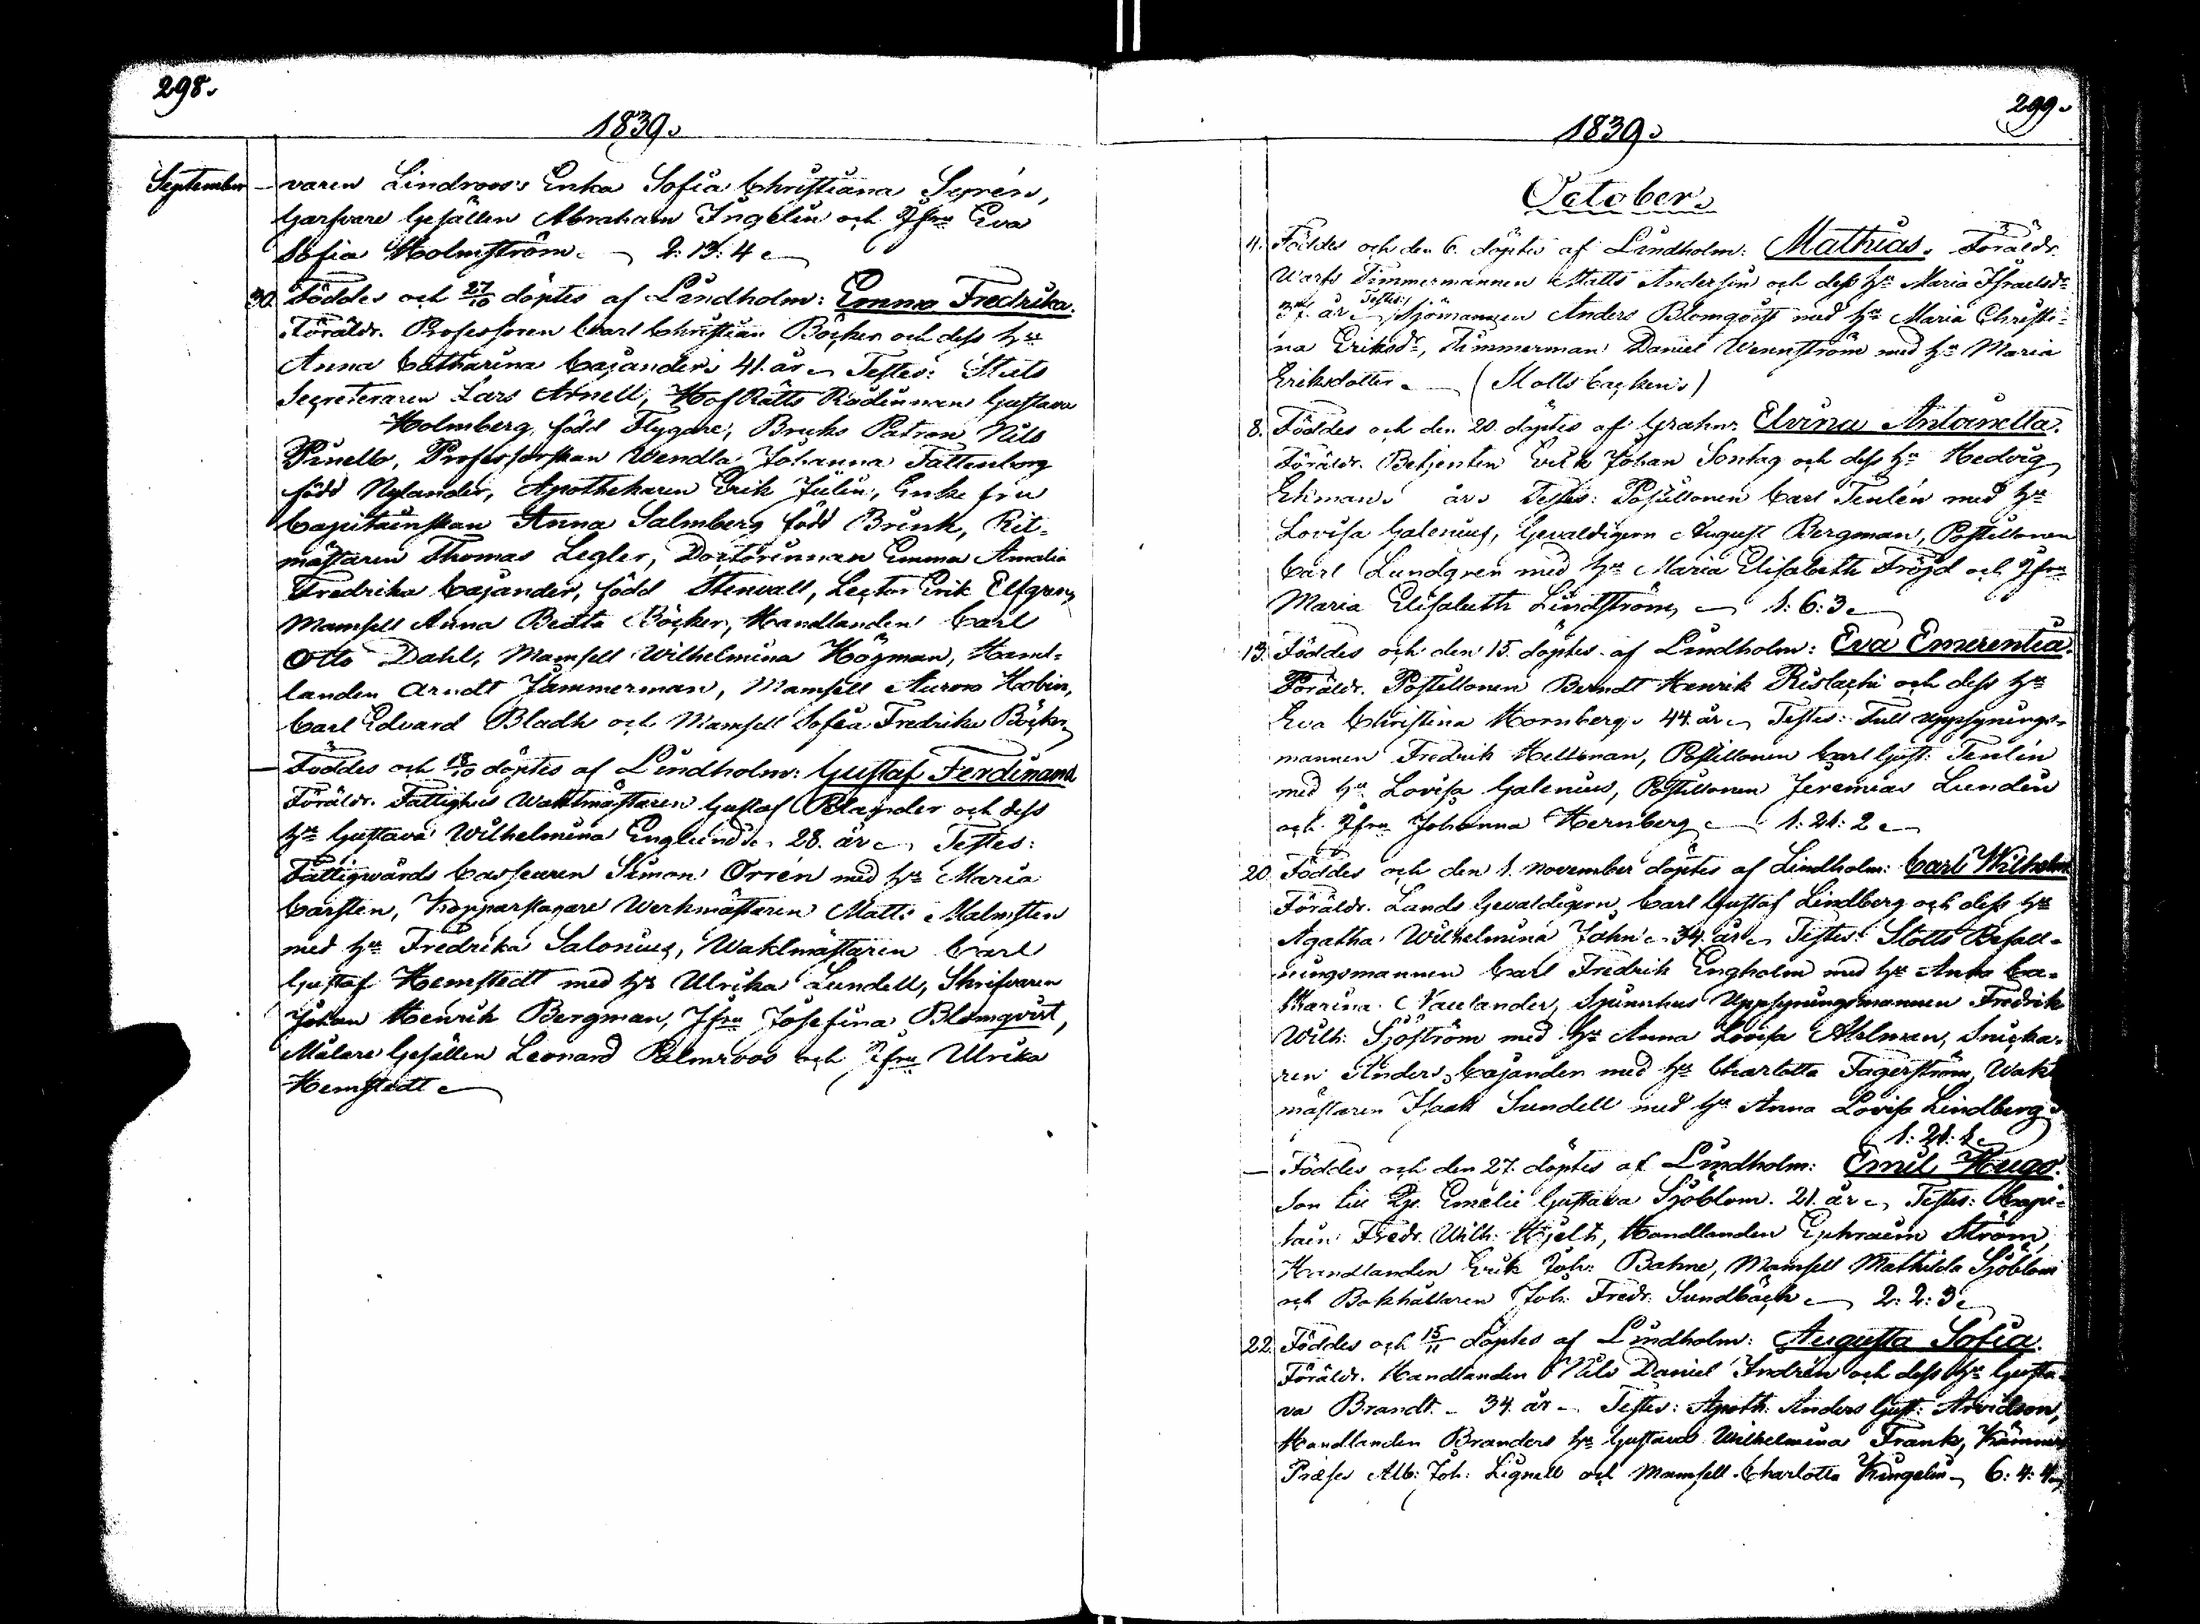 298.
1839.
September
— varen Lindroos's Enka Sofia Christiana Seprén,
Garfvare Gesällen Abraham Ingelin och Jfru Eva
Sofia Holmström. 2: 13: 4
30. Föddes och 27/10 döptes af Lindholm: Emma Fredrika.
Föräldr. Professoren Carl Christian Böcker och dess hu
Anna Catharina Cajander. 41. år Testes: Stats
Secreteraren Lars Arnell, Hof Rätts Rådinnan Gustava
Holmberg, född Flygare, Bruks Patron Nils
Pinello, Professorskan Wendla Johanna Fattenborg
född Nylander, Apothekaren Erik Julin, Enke fru
Capitainskan Anna Salmberg född Brink, Rit-
mästaren Thomas Legler, Doctorinnan Emma Amalia
Fredrika Cajander, född Stenvall, Lector Erik Elfgren,
Mamsell Anna Beata Böcker, Handlanden Carl
Otto Dahl, Mamsell Wilhelmina Högman, Hand-
landen Arndt Jammerman, Mamsell Aurora Hobin,
Carl Edvard Bladh och Mamsell Sofia Fredrika Böcker
— Föddes och 18/10 döptes af Lindholm: Gustaf Ferdinand
Föräldr. Fattighus Waktmästaren Gustaf Relander och dess
hu Gustava Wilhelmina Englund. 28. år Testes:
Fattigvårds Casseuren Simon Orrén med hu Maria
Carsten, Kopparslagare Werkmästaren Matts Malmsten
med hu Fredrika Salonius, Waktmästaren Carl
Gustaf Hemstedt med hu Ulrika Lundell, Skrifvaren
Johan Henrik Bergman, Jfru Josefina Blomqvist,
Målare Gesällen Leonard Palmroos och Jfru Ulrika
Hemstedt
299.
1839.
October.
4. Föddes och den 6. döptes af Lindholm: Mathias. Föräldr.
Warfs Timmermannen Matts Andersin och dess hu Maria Israelsdr
37. år Testes: Sjömannen Anders Blomqvist med hu Maria Christi-
na Eriksdr, Timmerman Daniel Wennström med hu Maria
Eriksdotter. (Slotts backen.)
8. Föddes och den 20. döptes af Grahn: Elvina Antoinetta.
Föräldr. Betjenten Erik Johan Sontag och dess hu Hedvig
Ekman. år. Testes: Postillonen Carl Tenlén med hu
Lovisa Galenius, Gevaldigern August Bergman, Postillonen
Carl Lundgren med hu Maria Elisabeth Fröjd och Jfru
Maria Elisabeth Lindström, 1: 6: 3
13. Föddes och den 15. döptes af Lindholm: Eva Emerentia.
Föräldr. Postillonen Berndt Henrik Rislachi och dess hu
Eva Christina Hornberg. 44. år Testes: Tull Uppsynings-
mannen Fredrik Hellman, Postillonen Carl Gust: Tenlén
med hu Lovisa Galenius, Postillonen Jeremias Lundén
och Jfru Johanna Hernberg 1: 21: 2
20. Föddes och den 1. November döptes af Lindholm: Carl Wilhelm.
Föräldr. Lands Gevaldigern Carl Gustaf Lindberg och dess hu
Agatha Wilhelmina Jahn 34. år Testes: Slotts Befall-
ningsmannen Carl Fredrik Engholm med hu Anna Ca-
tharina Naulander, Spinnhus Uppsyningsmannen Fredrik
Wilh: Sjöström med hu Anna Lovisa Ahlman, Snicka-
ren Anders Cajander med hu Charlotta Fagerström, Wakt
mästaren Isaak Sundell med hu Anna Lovisa Lindberg
1: 21: 1.
— Föddes och den 27. döptes af Lindholm: Emil Hugo.
Son till Emelie Gustava Sjöblom. 21. år Testes: Capi-
tain Fredr. Wilh: Hjelt, Handlanden Ephraim Ström,
Handlanden Erik Joh: Bahne, Mamsell Mathilda Sjöblom
och Bokhållaren Joh: Fredr. Sundbäck 2: 2: 3
22. Föddes och 15/11 döptes af Lindholm: Augusta Sofia.
Föräldr. Handlanden Nils Daniel Indrén och dess hu Gusta-
va Brandt. 34. år Testes: Apoth. Anders Gust: Arvidson,
Handlanden Branders hu Gustava Wilhelmina Frank, Kämners
Præses Alb: Joh: Lignell och Mamsell Charlotta Kingelin 6: 4: 4